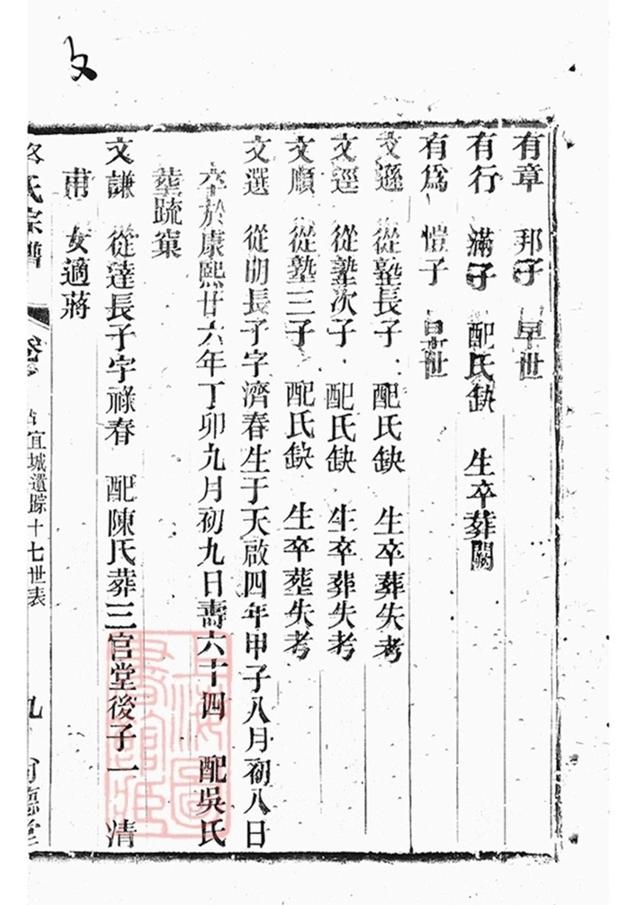 有章 邦子 早世
有行 滿子 配氏缺 生卒葬闕
有爲 愷子 早世
文遜 從塾長子 配氏缺 生卒葬失考
文逕 從塾次子 配氏缺 生卒葬失考
文順 從塾三子 配氏缺 生卒塟失考
文選 從朗長子字濟春生于天啟四年甲子八月初八日
卒於康熙廿六年丁卯九月初九日壽六十四 配吳氏
塟踈窠
文謙 從達長子字祿春 配陳氏葬三官堂後子一 清
甫 女適蔣
氏宗譜 卷 宜城遺踪十七世表 九 德堂